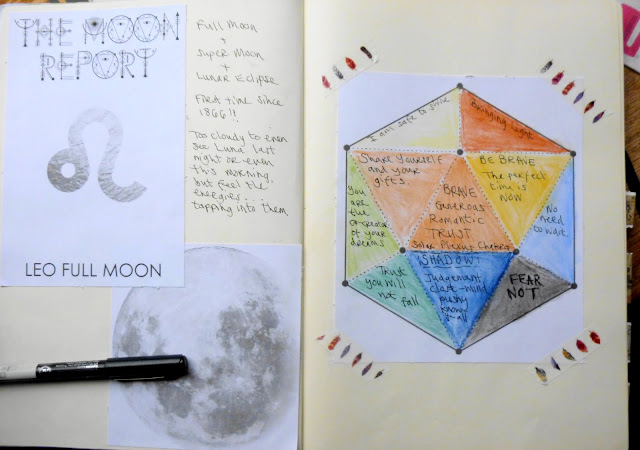 THE MOON
REPORT
LEO FULL MOON
Full Moon
+
Super Moon
+
Lunar Eclipse
First time since
1866!!
Too cloudy to even
see Luna last
night or even
this morning
but feel the
energies...
tapping into them
I am safe to shine
Bringing Light
Share Yourself
and your
gifts.
BE BRAVE
The perfect
time is
NOW
BRAVE
Generous
Romantic
TRUST
Solar Plexus Chakra
You
are
the
co-creator
of your
dreams
No
need
to wait.
Trust
you will
not fall
SHADOW:
Judgemental
closed-mind
pushy
know
it-all
FEAR
NOT